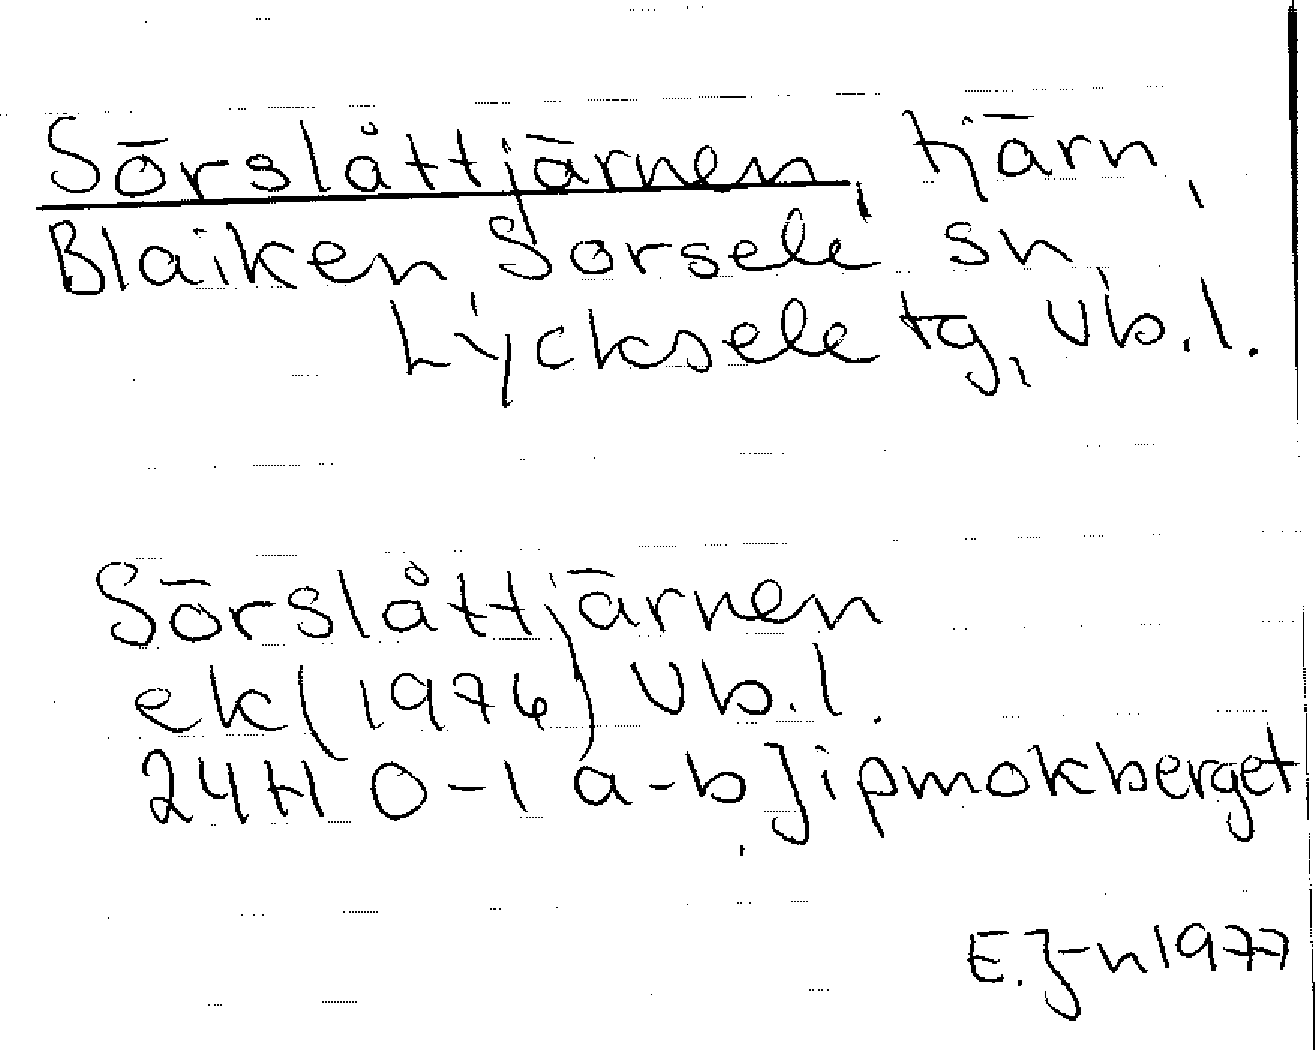 Sörslåttjärnen, tjärn,
Blaiken, Sorsele sn,
Lycksele tg, Vb.l.
Sörslåttjärnen
ek (1976) Vb.l.
24H 0-1 a-b Jipmokberget
E.J-n 1977